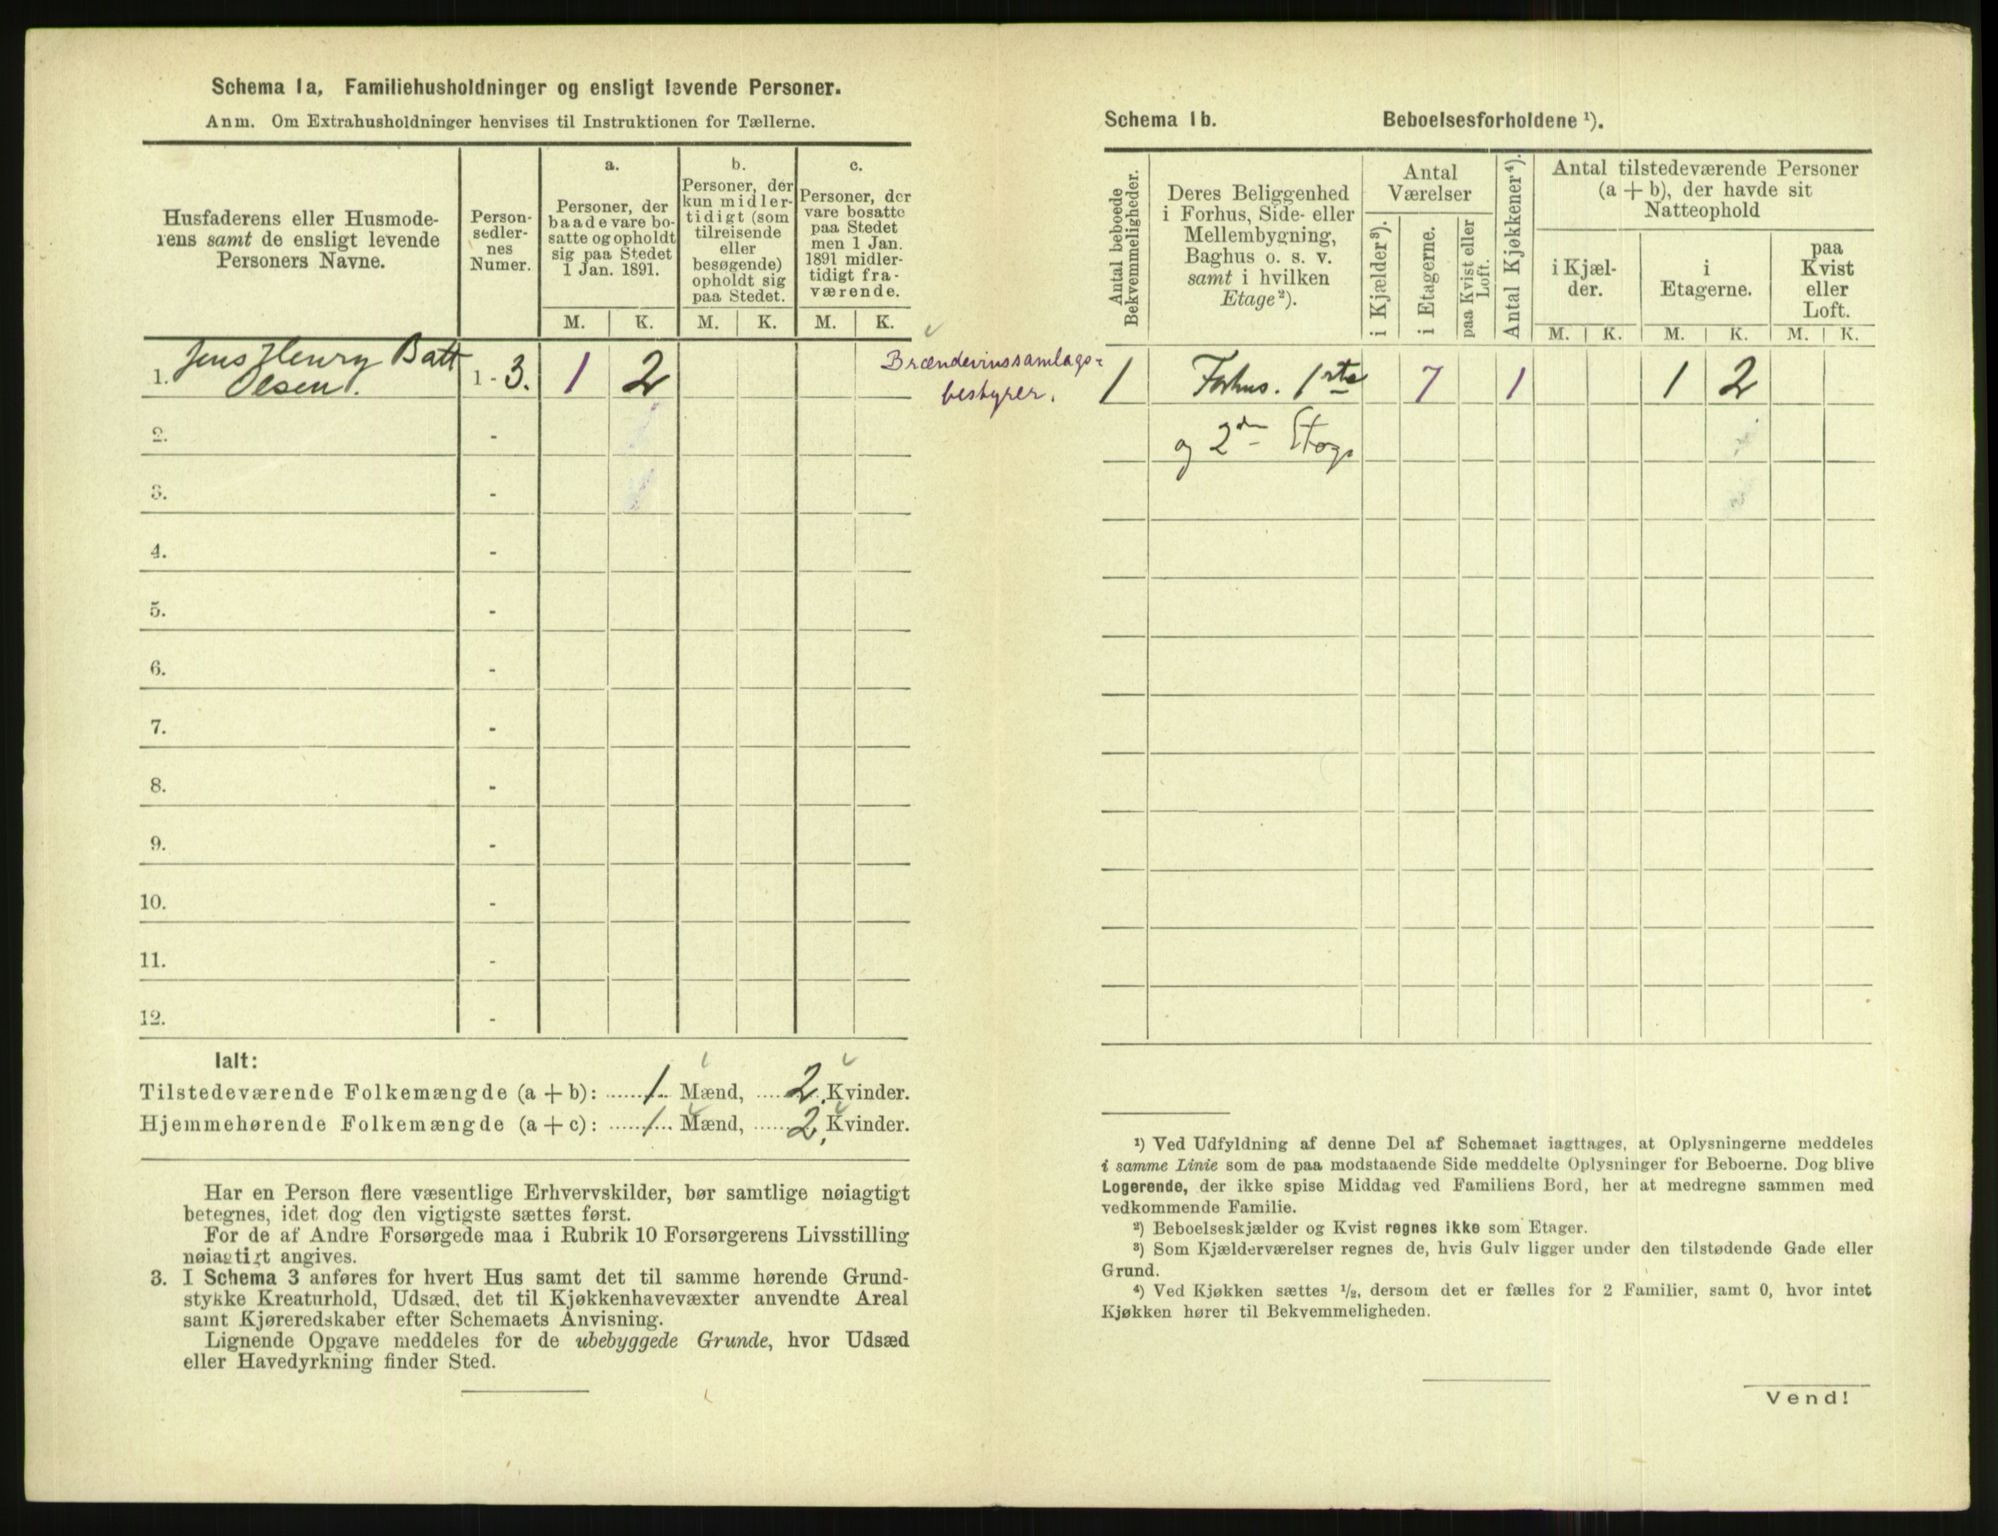 Schema 1a, Familiehusholdninger og ensligt levende Personer.
Anm. Om Extrahusholdninger henvises til Instruktionen for Tællerne.
Husfaderens eller Husmode-
rens samt de ensligt levende
Personers Navne.
Person-
sedler-
nes
Numer.
a.
Personer, der
baade vare bo-
satte og opholdt
sig paa Stedet
1 Jan. 1891.
b.
Personer, der
kun midler-
tidigt (som
tilreisende
eller
besøgende)
opholdt sig
paa Stedet.
c.
Personer, der
vare bosatte
paa Stedet
men 1 Jan.
1891 midler-
tidigt fra-
værende.
M. K. M. K. M. K.
1. Jens Henry Batt
Olsen. 1 - 3. 1 2 Brændevinssamlags-
bestyrer.
2. -
3. -
4. -
5. -
6. -
7. -
8. -
9. -
10. -
11. -
12. -
Ialt:
Tilstedeværende Folkemængde (a + b): 1 Mænd, 2 Kvinder.
Hjemmehørende Folkemængde (a + c): 1 Mænd, 2 Kvinder.
Har en Person flere væsentlige Erhvervskilder, bør samtlige nøiagtigt
betegnes, idet dog den vigtigste sættes først.
For de af Andre Forsørgede maa i Rubrik 10 Forsørgerens Livsstilling
nøiagtigt angives.
3. I Schema 3 anføres for hvert Hus samt det til samme hørende Grund-
stykke Kreaturhold, Udsæd, det til Kjøkkenhavevæxter anvendte Areal
samt Kjøreredskaber efter Schemaets Anvisning.
Lignende Opgave meddeles for de ubebyggede Grunde, hvor Udsæd
eller Havedyrkning finder Sted.
Schema 1b. Beboelsesforholdene ¹).
Antal beboede
Bekvemmeligheder.
Deres Beliggenhed
i Forhus, Side- eller
Mellembygning,
Baghus o. s. v.
samt i hvilken
Etage ²).
Antal
Værelser
i Kjælder ³).
i Etagerne.
paa Kvist eller
Loft.
Antal Kjøkkener ⁴).
Antal tilstedeværende Personer
(a + b), der havde sit
Natteophold
i Kjæl-
der.
i
Etagerne.
paa
Kvist
eller
Loft.
M. K. M. K. M. K.
1 Forhus. 1ste 7 1 1 2
og 2den Etag.
¹) Ved Udfyldning af denne Del af Schemaet iagttages, at Oplysningerne meddeles
i samme Linie som de paa modstaaende Side meddelte Oplysninger for Beboerne. Dog blive
Logerende, der ikke spise Middag ved Familiens Bord, her at medregne sammen med
vedkommende Familie.
²) Beboelseskjælder og Kvist regnes ikke som Etager.
³) Som Kjælderværelser regnes de, hvis Gulv ligger under den tilstødende Gade eller
Grund.
⁴) Ved Kjøkken sættes ½, dersom det er fælles for 2 Familier, samt 0, hvor intet
Kjøkken hører til Bekvemmeligheden.
Vend!